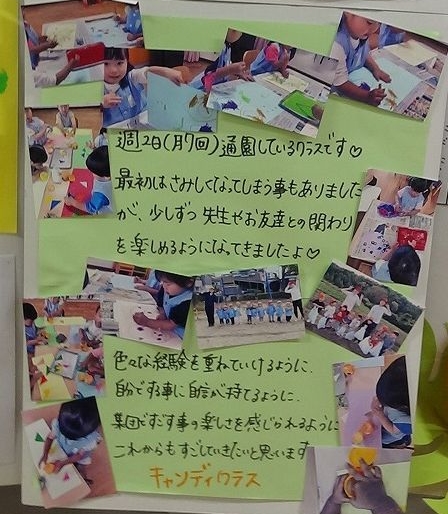 週2日(月7回)通園しているクラスです♡
最初はさみしくなってしまう事もありました
が、少しずつ先生やお友達との関わり
を楽しめるようになってきましたよ♡
色々な経験を重ねていけるように、
自分でする事に自信が持てるように、
集団ですごす事の楽しさを感じられるように
これからもすごしていきたいと思います
キャンディクラス